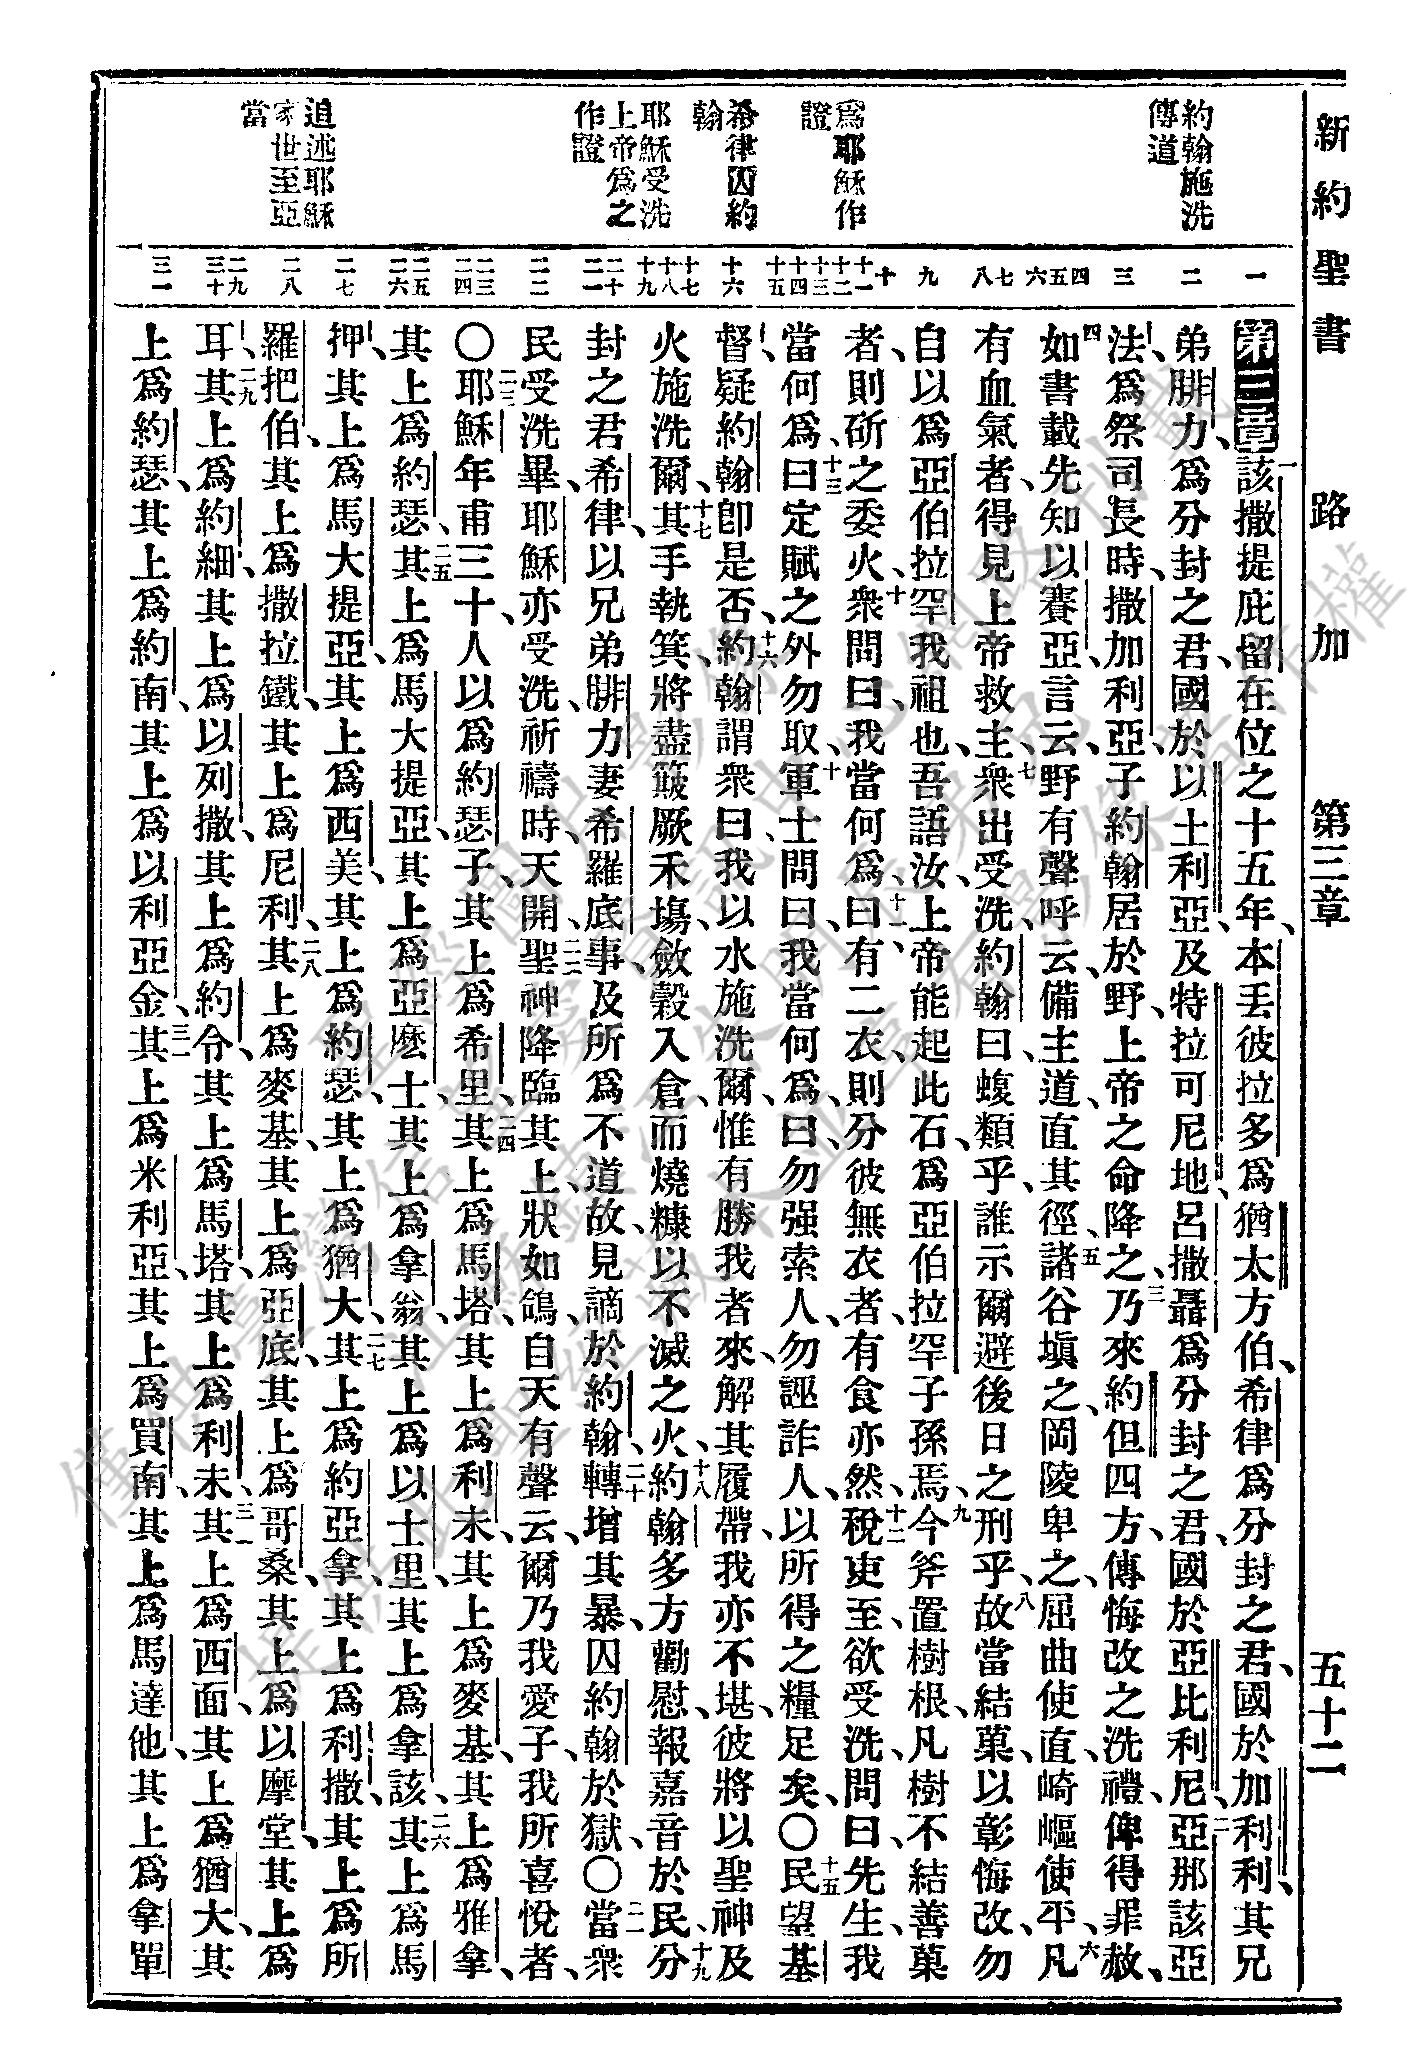 新約聖書 路加 第三章 五十二
約翰施洗
傳道
爲耶穌作
證
希律囚約
翰
耶穌受洗
上帝爲之
作證
追述耶穌
家世至亞
當
一 二 三 四 五 六 七 八 九 十 十一 十二 十三 十四 十五 十六 十七 十八 十九 二十 二一 二二 二三 二四 二五 二六 二七 二八 二九 三十 三一
第三章一該撒提庇留在位之十五年、本丟彼拉多爲猶太方伯、希律爲分封之君、國於加利利、其兄
弟腓力、爲分封之君、國於以土利亞、及特拉可尼地、呂撒聶爲分封之君、國於亞比利尼、二亞那該亞
法、爲祭司長時、撒加利亞、子約翰居於野、上帝之命降之、三乃來約但四方、傳悔改之洗禮、俾得罪赦、
四如書載先知以賽亞、言云、野有聲呼云、備主道、直其徑、五諸谷塡之、岡陵卑之、屈曲使直、崎嶇使平、六凡
有血氣者、得見上帝救主、七衆出受洗、約翰曰、蝮類乎、誰示爾避後日之刑乎、八故當結菓、以彰悔改、勿
自以爲亞伯拉罕我祖也、吾語汝、上帝能起此石、爲亞伯拉罕子孫焉、九今斧置樹根、凡樹不結善菓
者、則斫之委火、十衆問曰、我當何爲、十一曰、有二衣、則分彼無衣者、有食亦然、十二稅吏至、欲受洗、問曰、先生、我
當何爲、十三曰定賦之外勿取、十四軍士問曰、我當何爲、曰、勿强索人、勿誣詐人、以所得之糧足矣、〇十五民望基
督、疑約翰卽是否、十六約翰謂衆曰、我以水施洗爾、惟有勝我者來、解其履帶、我亦不堪、彼將以聖神及
火施洗爾、十七其手執箕、將盡簸厥禾塲、斂穀入倉、而燒糠以不滅之火、十八約翰多方勸慰、報嘉音於民、十九分
封之君希律、以兄弟腓力妻希羅底事、及所爲不道故、見謫於約翰、二十轉增其暴、囚約翰於獄、〇二一當衆
民受洗畢、耶穌亦受洗、祈禱時、天開、二二聖神降臨其上、狀如鴿、自天有聲云、爾乃我愛子、我所喜悅者、
〇二三耶穌年甫三十、人以爲約瑟子、其上爲希里、二四其上爲馬塔、其上爲利未、其上爲麥基、其上爲雅拿、
其上爲約瑟、二五其上爲馬大提亞、其上爲亞麽士其上爲拿翁、其上爲以士里、其上爲拿該、二六其上爲馬
押、其上爲馬大提亞、其上爲西美、其上爲約瑟、其上爲猶大、二七其上爲約亞拿、其上爲利撒、其上爲所
羅把伯、其上爲撒拉鐵、其上爲尼利、二八其上爲麥基、其上爲亞底、其上爲哥桑、其上爲以摩堂、其上爲
耳、二九其上爲約細、其上爲以列撒、其上爲約令、其上爲馬塔、其上爲利未、三十其上爲西面、其上爲猶大、其
上爲約瑟、其上爲約南、其上爲以利亞金、三一其上爲米利亞、其上爲買南、其上爲馬達他、其上爲拿單